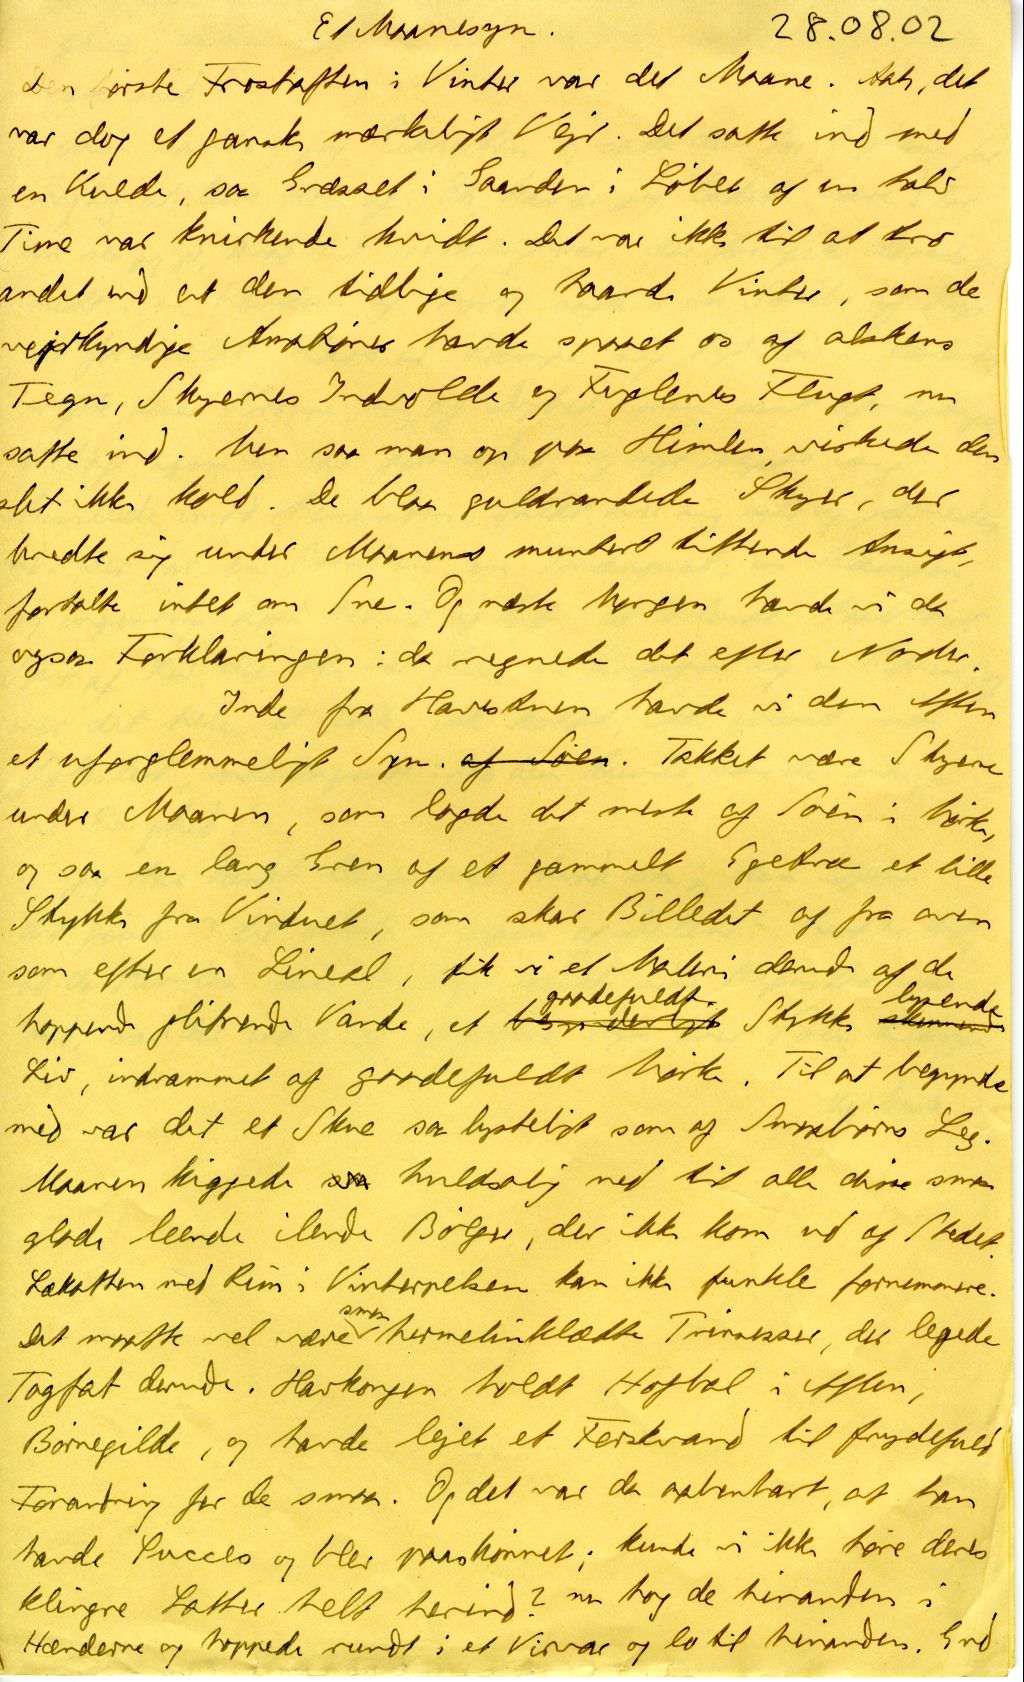 Et Maanesyn.
28.08.02
Den første Frostaften i Vinter var det Maane. Aah, det
var dog et ganske mærkeligt Vejr. Det satte ind med
en Kulde, saa Græsset i Gaarden i Løbet af en halv
Time var knirkende hvidt. Det var ikke til at tro
andet end at den tidlige og haarde Vinter, som de
vejrkyndige Amatører havde spaaet os af alskens
Tegn, Skyernes Indvolde og Fuglenes Flugt, nu
satte ind. Men saa man op paa Himlen, virkede den
slet ikke kold. De blaa guldrandede Skyer, der
bredte sig under Maanens muntert tittende Ansigt,
fortalte intet om Sne. Og næste Morgen havde vi da
ogsaa Forklaringen: da regnede det efter Noder.
Inde fra Havestuen havde vi den Aften
et uforglemmeligt Syn. af Søen. Takket være Skyerne
under Maanen, som lagde det meste af Søen i Mørke,
og saa en lang Gren af et gammelt Egetræ et lille
Stykke fra Vinduet, som skar Billedet af fra oven
som efter en Lineal, fik vi et Maleri derude af de
hoppende glitrende Vande, et gaadefuldt Stykke lysende
Liv, indrammet af gaadefuldt Mørke. Til at begynde
med var det et Skue saa lysteligt som af Smaabørns Leg.
Maanen kiggede saa huldsalig ned til alle disse smaa
glade leende ilende Bølger, der ikke kom ud af Stedet.
Lækatten med Rim i Vinterpelsen kan ikke funkle fornemmere.
Det maatte vel være smaa hermelinklædte Prinsesser, der legede
Tagfat derude. Havkongen holdt Hofbal i Aften,
Børnegilde, og havde lejet et Ferskvand til frydefuld
Forandring for de smaa. Og det var da aabenbart, at han
havde Succes og blev paaskønnet; kunde vi ikke høre deres
klingre Latter helt herind? nu tog de hinanden i
Hænderne og hoppede rundt i et Virvar og lo til hinanden. End